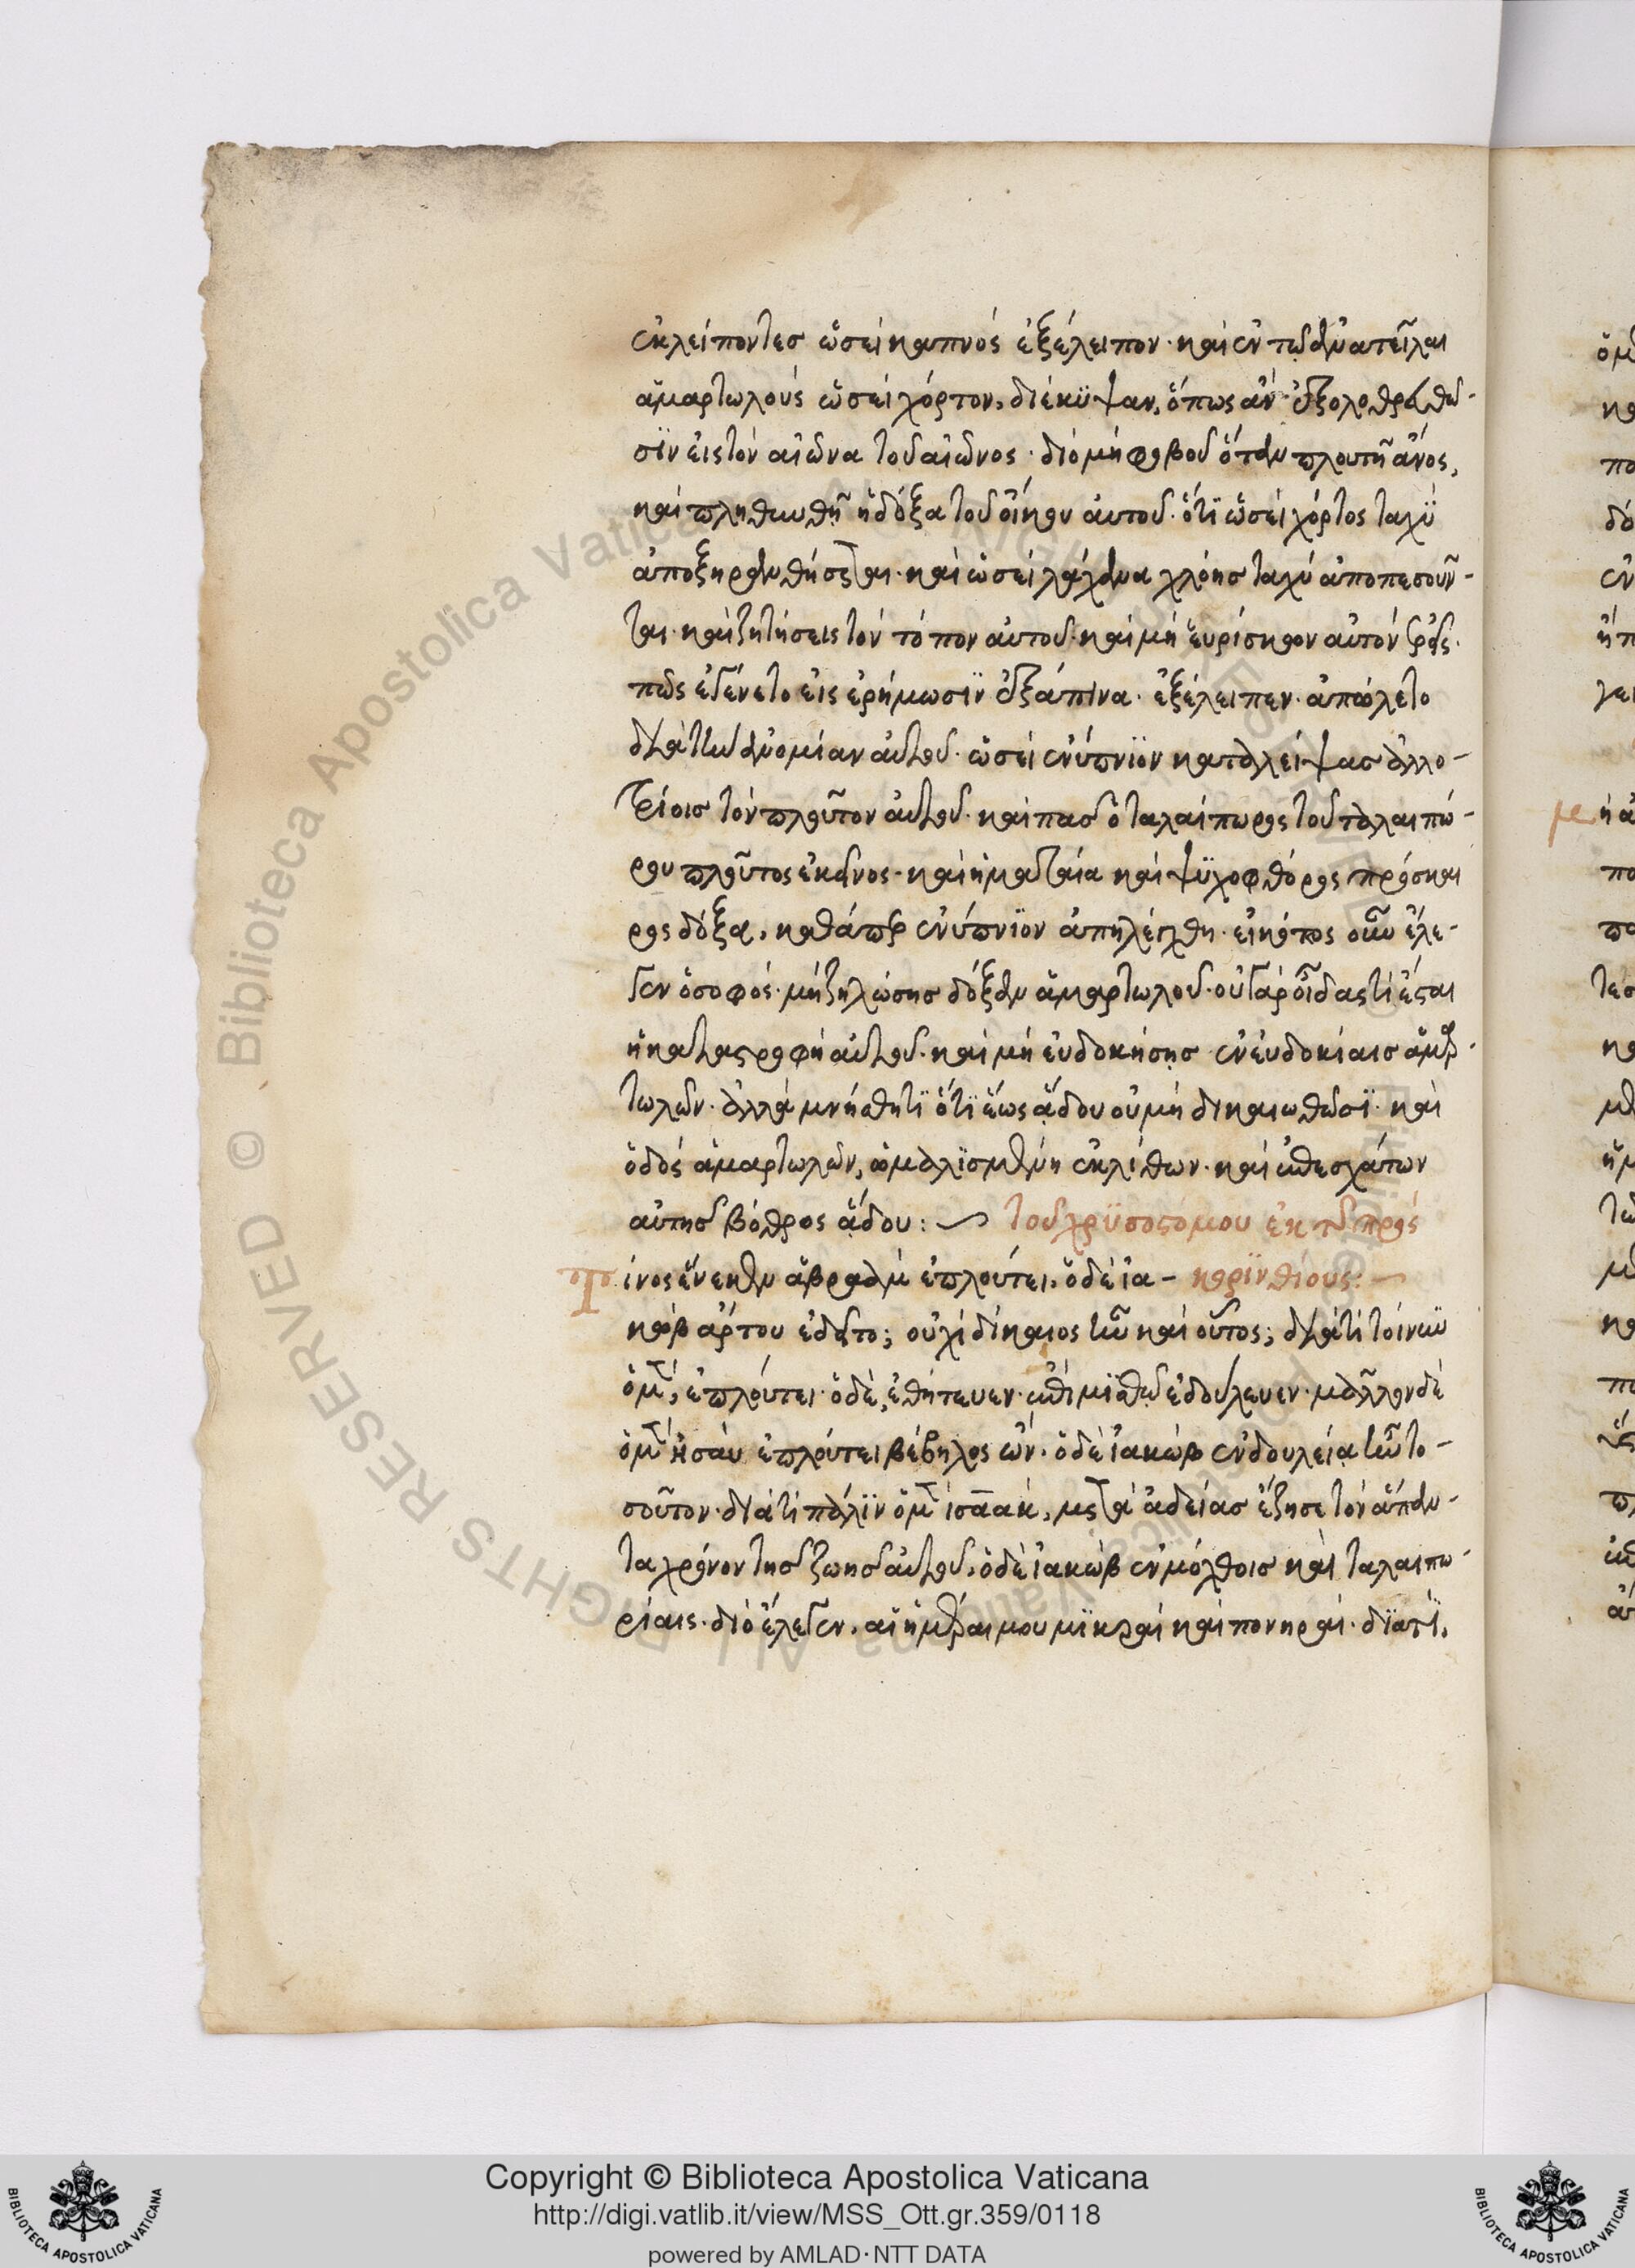 ἐκλείποντες ὡσεὶ καπνὸς ἐξέλειπον· καὶ ἐν τῶ ἀνατεῖλαι
ἁμαρτωλοὺς ὡσεὶ χόρτον, διέκϋψαν, ὅπως ἂν ἐξολοθρευθῶ-
σϊν εἰς τὸν αἰῶνα τοῦ αἰῶνος· διὸ μὴ φοβοῦ ὅταν πλουτῆ ἄνος,
καὶ πληθυνθῆ ἡ δόξα τοῦ οἴκου αὐτοῦ· ὅτϊ ὡσεὶ χόρτος ταχὺ
ἀποξηρανθήσεται· καὶ ὡσεὶ λάχανα χλόης ταχὺ ἀποπεσοῦν-
ται· καὶ ζητήσεις τὸν τόπον αὐτοῦ· καὶ μὴ εὑρίσκον αὐτὸν ἐρεῖς·
πῶς ἐγένετο εἰς ἐρήμωσϊν ἐξάπινα· ἐξέλειπεν· ἀπώλετο
διὰ τὴν ἀνομίαν αὐτοῦ· ὡσεὶ ἐνύπνϊον καταλείψας ἀλλο-
τρίοις τὸν πλοῦτον αὐτοῦ· καὶ πᾶσ ὁ ταλαίπωρος τοῦ ταλαιπώ-
ρου πλοῦτος ἐκεῖνος· καὶ ἡ ματαία καὶ ψϋχοφθόρος πρόσκαι
ρος δόξα, καθάπερ ἐνύπνϊον ἀπηλέγχθη· εἰκότως οὖν ἔλε-
γεν ὁ σοφός· μὴ ζηλώσης δόξαν ἁμαρτωλοῦ· οὐ γὰρ οἶδας τί ἔσται
ἡ καταστροφὴ αὐτοῦ· καὶ μὴ εὐδοκήσης ἐν εὐδοκίαις ἁμαρ-
τωλῶν· ἀλλὰ μνήσθητϊ ὅτϊ ἕως ἅδου οὐ μὴ δικαιωθῶσϊ· καὶ
ὁδὸς ἁμαρτωλῶν, ὡμαλϊσμένη ἐκ λίθων· καὶ ἐπ' ἐσχάτων
αὐτῆς βόθρος ἅδου: τοῦ χρϋσοστόμου ἐκ τῶν πρὸς
Τίνος ἕνεκεν ἁβραὰμ ἐπλούτει. ὁ δὲ ἰα- κορϊνθίους:
κὼβ ἄρτου ἐδεῖτο; οὐχὶ δίκαιος ἦν καὶ οὗτος; διατί τοίνυν
ὁ μὲν, ἐπλούτει· ὁ δὲ, ἐθήτευεν· ἐπὶ μισθῶ ἐδούλευεν· μᾶλλον δὲ
ὁ μὲν ἠσαῦ ἐπλούτει βέβηλος ὤν· ὁ δὲ ἰακὼβ ἐν δουλεία ἦν το-
σοῦτον· διατί πάλϊν ὁ μὲν ἰσαὰκ, μετὰ ἀδείας ἔζησε τὸν ἅπαν-
τα χρόνον τῆς ζωῆς αὐτοῦ, ὁ δὲ ἰακὼβ ἐν μόχθοις καὶ ταλαιπω-
ρίαις· διὸ ἔλεγεν. αἱ ἡμέραι μου μϊκραὶ καὶ πονηραί· δϊατϊ,
Copyright © Biblioteca Apostolica Vaticana
http://digi.vatlib.it/view/MSS_Ott.gr.359/0118
powered by AMLAD·NTT DATA